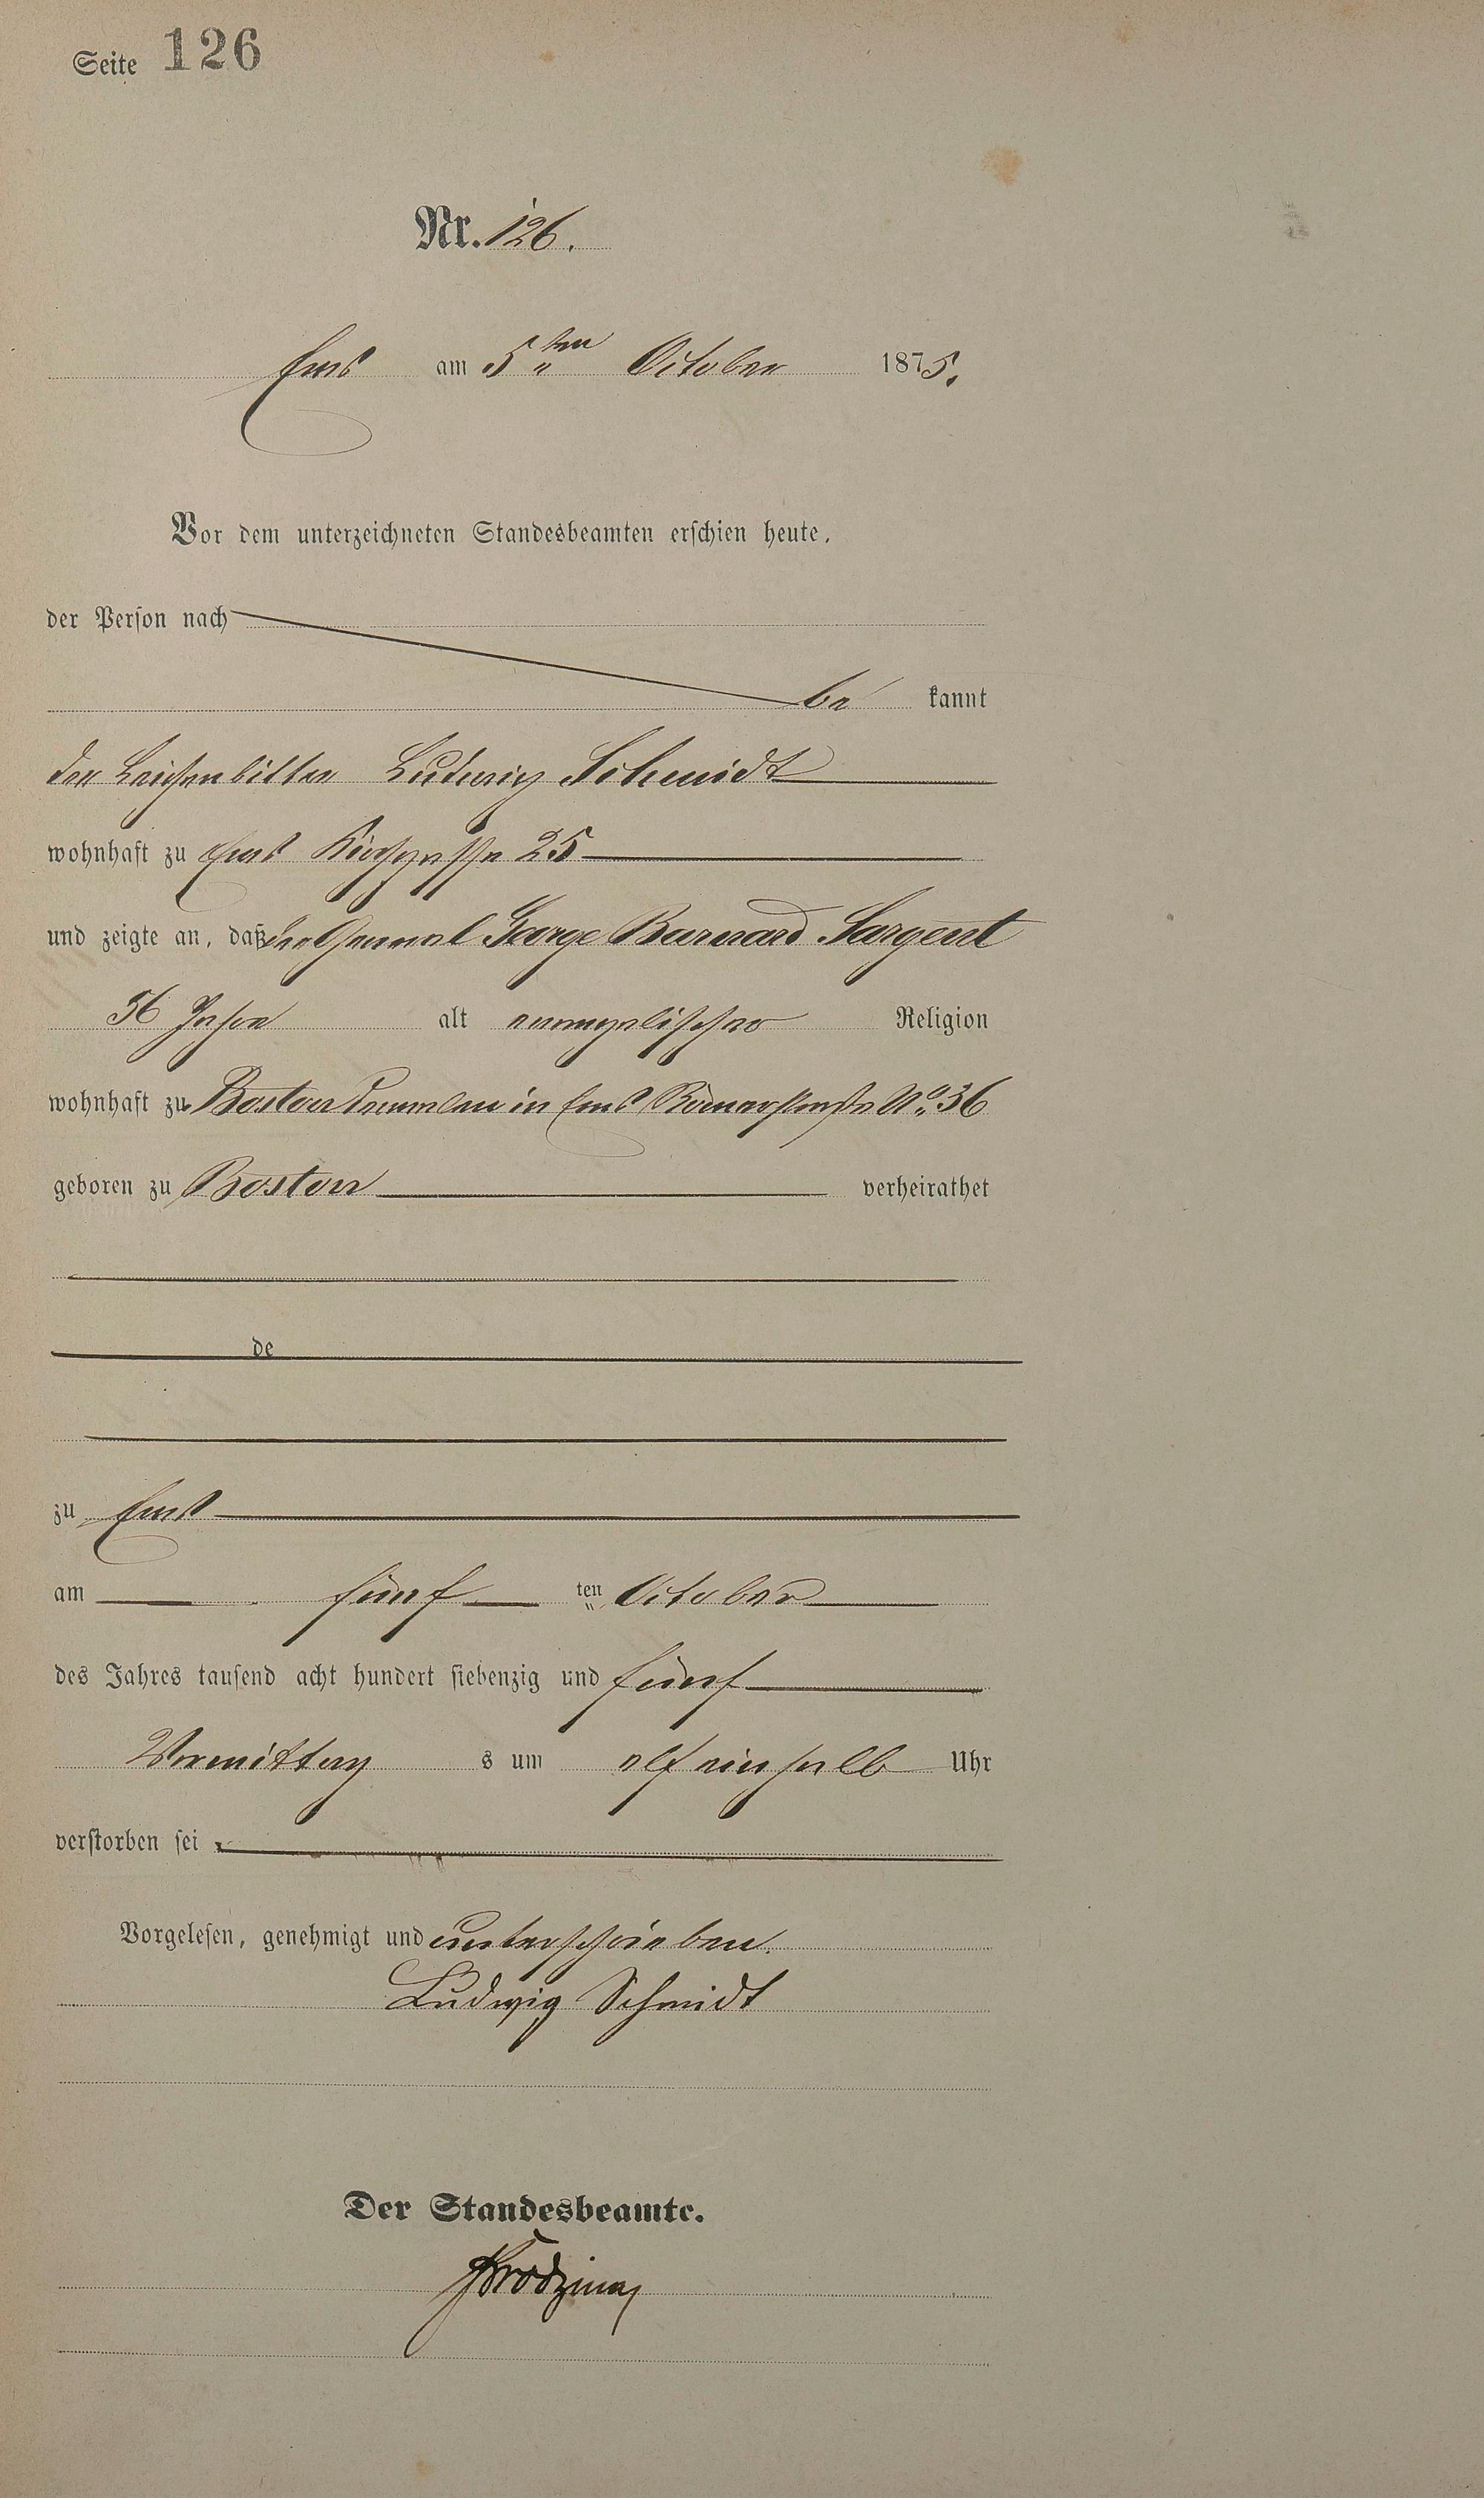 Seite 126
Nr. 126.
Ems am 5ten October 1875.
Vor dem unterzeichneten Standesbeamten erschien heute,
der Person nach
be kannt
der Leichenbitter Ludwig Schmidt
wohnhaft zu Ems Kirchgasse 25
und zeigte an, daß der General George Barnard Sargent
56 Jahre alt evangelischer Religion
wohnhaft zu Boston in Ems Römerstraße No. 36
geboren zu Boston verheirathet
de
zu Ems
am fünf ten October
des Jahres tausend acht hundert siebenzig und fünf
Vormittag s um elf einhalb Uhr
verstorben sei
Vorgelesen, genehmigt und unterschrieben.
Ludwig Schmidt
Der Standesbeamte.